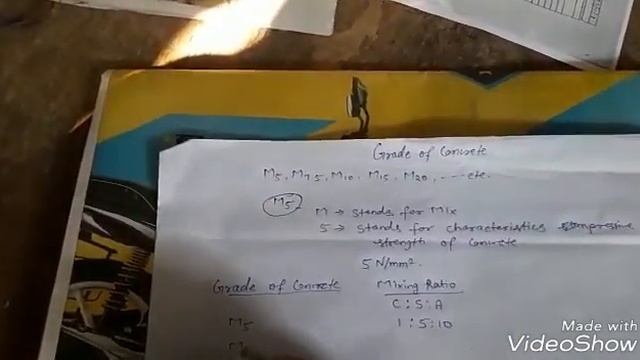 Grade of Concrete
M5, M7.5, M10, M15, M20, ---- etc.
M5
M → stands for Mix
5 → stands for characteristics compressive
strength of concrete
5 N/mm².
Grade of Concrete Mixing Ratio
C : S : A
M5 1 : 5 : 10
Made with
VideoShow